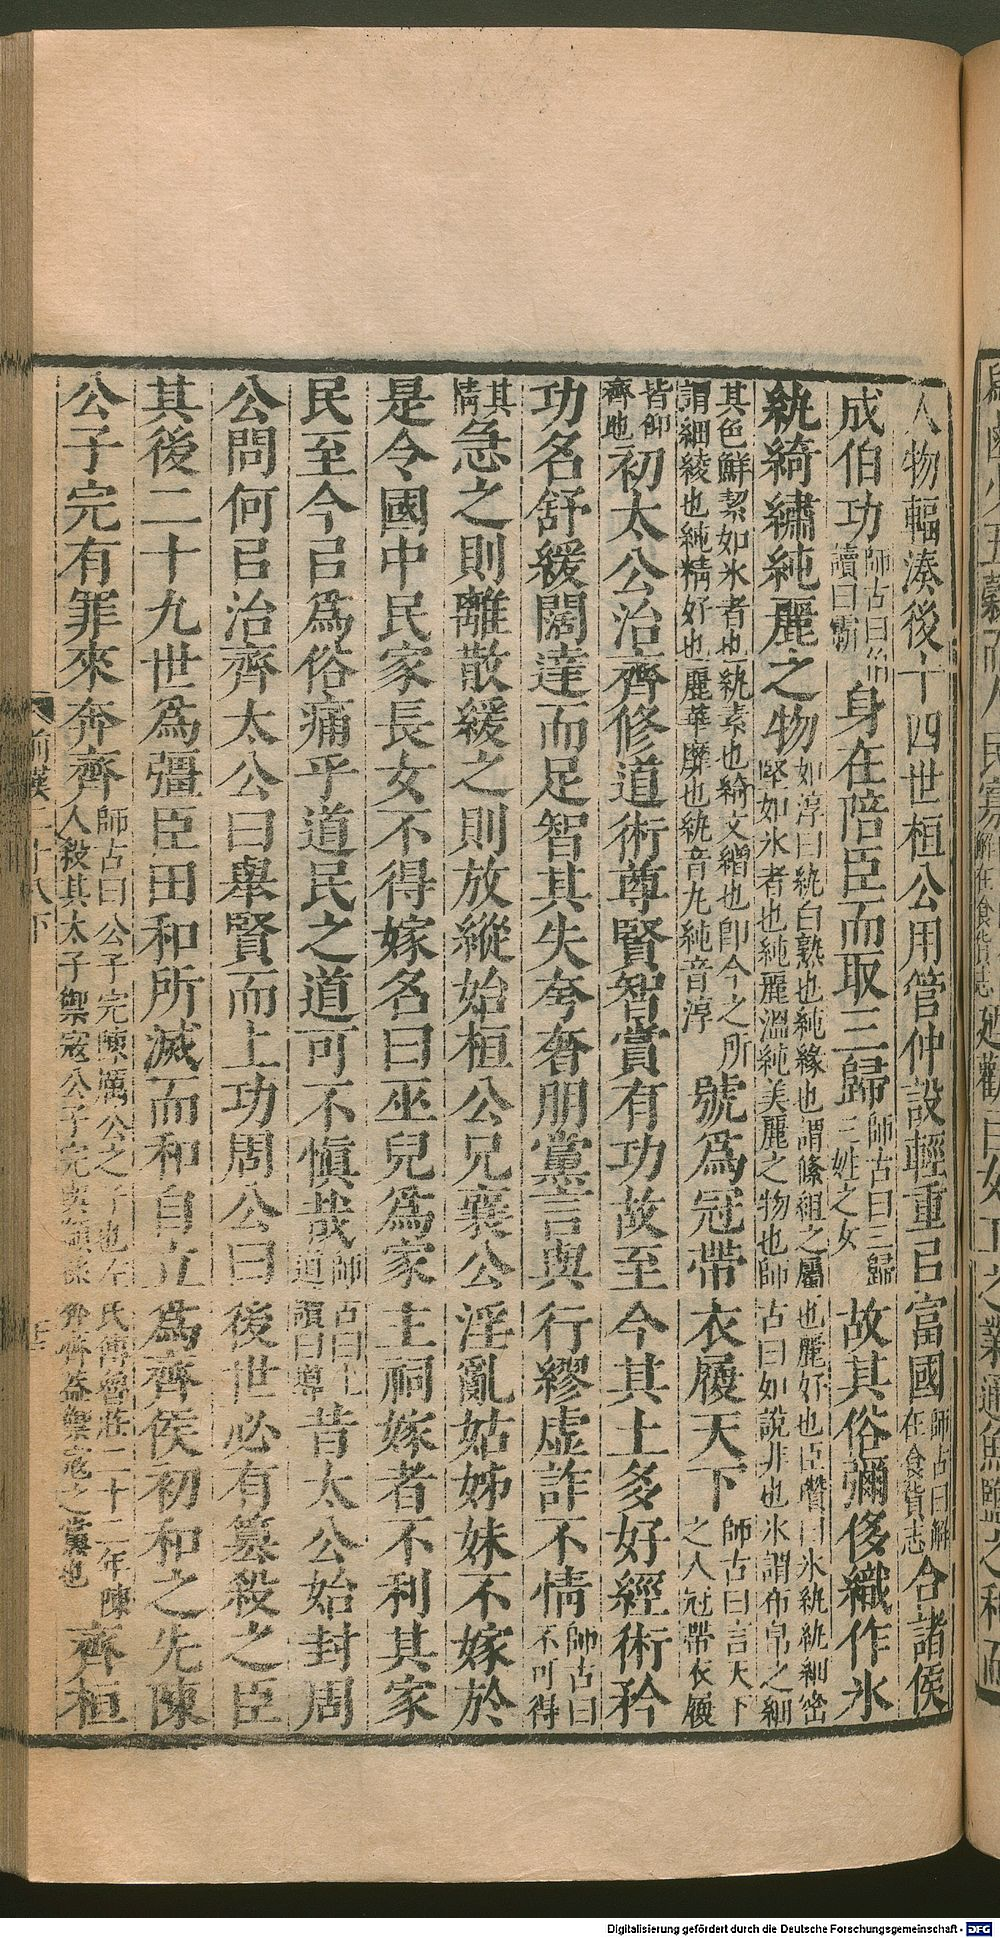 人物輻湊後十四世桓公用管仲設輕重㠯富國師古曰解在食貨志合諸侯
成伯功師古曰伯讀曰霸身在陪臣而取三歸師古曰三歸三姓之女故其俗彌侈織作冰
紈綺繡純麗之物如淳曰紈白熟也純緣也謂絛組之屬也麗好也臣瓚曰冰紈紈細密堅如冰者也純麗溫純美麗之物也師古曰如說非也冰謂布帛之細
其色鮮絜如冰者也紈素也綺文繒也卽今之所謂細綾也純精好也麗華靡也紈音丸純音淳號爲冠帶衣履天下師古曰言天下之人冠帶衣履
皆卬齊地初太公治齊修道術尊賢智賞有功故至今其土多好經術矜
功名舒緩闊達而足智其失夸奢朋黨言與行繆虛詐不情師古曰不可得
其情急之則離散緩之則放縱始桓公兄襄公淫亂姑姊妹不嫁於
是令國中民家長女不得嫁名曰巫兒爲家主祠嫁者不利其家
民至今㠯爲俗痛乎道民之道可不愼哉師古曰上道讀曰導昔太公始封周
公問何㠯治齊太公曰舉賢而上功周公曰後世必有篡殺之臣
其後二十九世爲彊臣田和所滅而和自立爲齊侯初和之先陳
公子完有罪來奔齊師古曰公子完陳厲公之子也左氏傳魯莊二十二年陳人殺其太子禦寇公子完與顓孫奔齊蓋禦寇之黨也齊桓
前漢二十八下
Digitalisierung gefördert durch die Deutsche Forschungsgemeinschaft - DFG